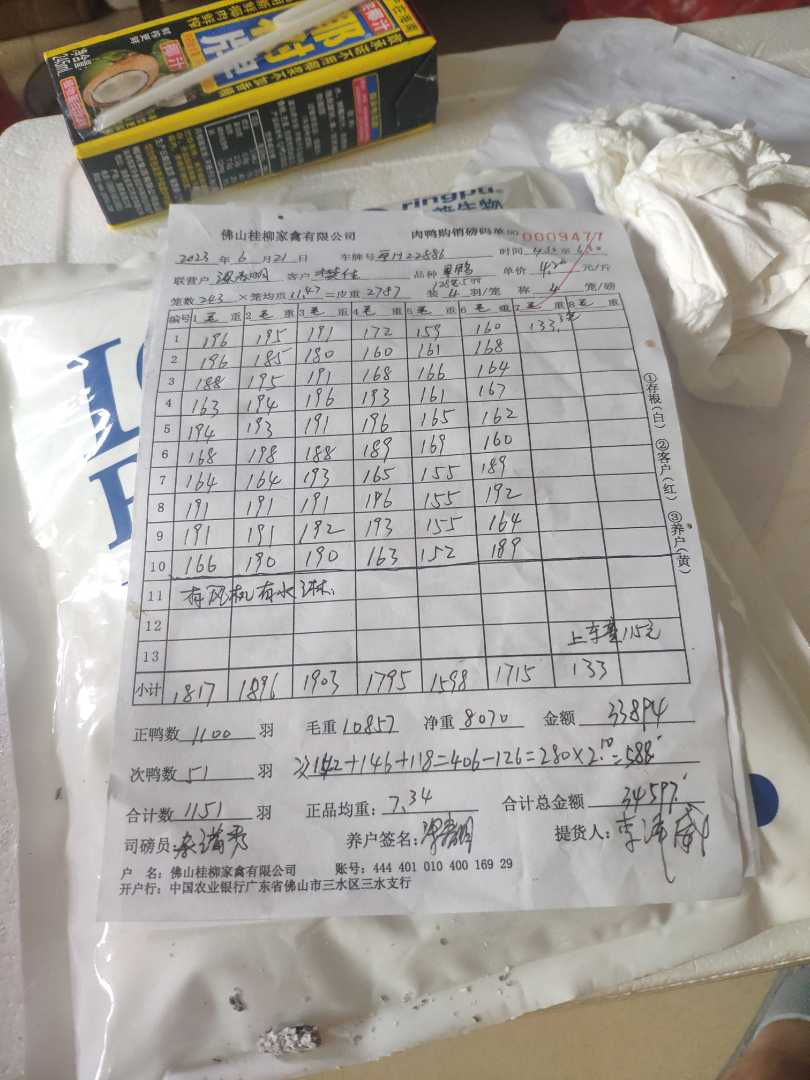 椰树牌
椰汁
245mL
ringpu
佛山桂柳家禽有限公司 肉鸭购销磅码单 0009477
2023 年 6 月 21 日 车牌号 22886 时间
联营户 客户 品种 单价 元/斤
笼数 243 ×笼均重 11.47 =皮重 2787 装 4 羽/笼 称 4 笼/磅
编号 1 毛 重 2 毛 重 3 毛 重 4 毛 重 5 毛 重 6 毛 重 7 毛 重 8 毛 重
1 196 195 191 172 159 160 133
2 196 185 180 160 161 168
3 188 195 191 168 166 164
4 163 194 196 193 161 167
5 194 193 191 196 165 162
6 168 198 188 189 169 160
7 164 164 193 165 155 189
8 191 191 191 196 155 192
9 191 191 192 193 155 164
10 166 190 190 163 152 189
11 有风机有水淋
12
13 上车费115元
小计 1817 1896 1903 1795 1598 1715 133
①存根(白) ②客户(红) ③养户(黄)
正鸭数 1100 羽 毛重 10857 净重 8070 金额 33894
次鸭数 51 羽 142+146+118=406-126=280×2.10=588
合计数 1151 羽 正品均重: 7.34 合计总金额 34597
司磅员: 养户签名: 提货人:
户 名: 佛山桂柳家禽有限公司 账号: 444 401 010 400 169 29
开户行: 中国农业银行广东省佛山市三水区三水支行